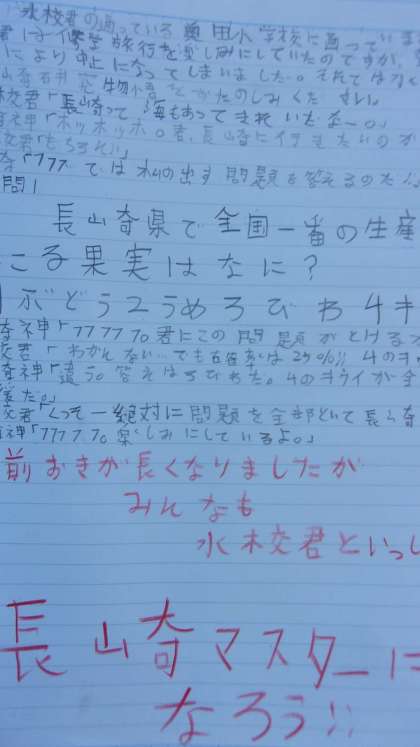 「水校君の通っている奥田小学校に通っていま
君は修学旅行を楽しみにしていたのですが、
により中止になってしまいました。それでは
物語をおたのしみください。
校君「長崎って海もあってきれいだな〜。」
神「ホッホッホ。君、長崎にイテきたいのか
交君「もちろん!」
「フフフでは私の出す問題を答えるのだ!
問1
長崎県で全国一番の生産
こる果実はなに?
1ぶどう2うめ3びわ4キ
奇神「フフフフフ。君にこの問題がとけるか
交君「わかんない…でも確率は25%!!4のキウ
奇神「違う。答えは3びわだ。4のキウイが全
だ。」
交君「くっそー絶対に問題を全部といて長崎
奇神「フフフフ。楽しみにしているよ。」
前おきが長くなりましたが
みんなも
水校君といっし
長崎マスターに
なろう!!